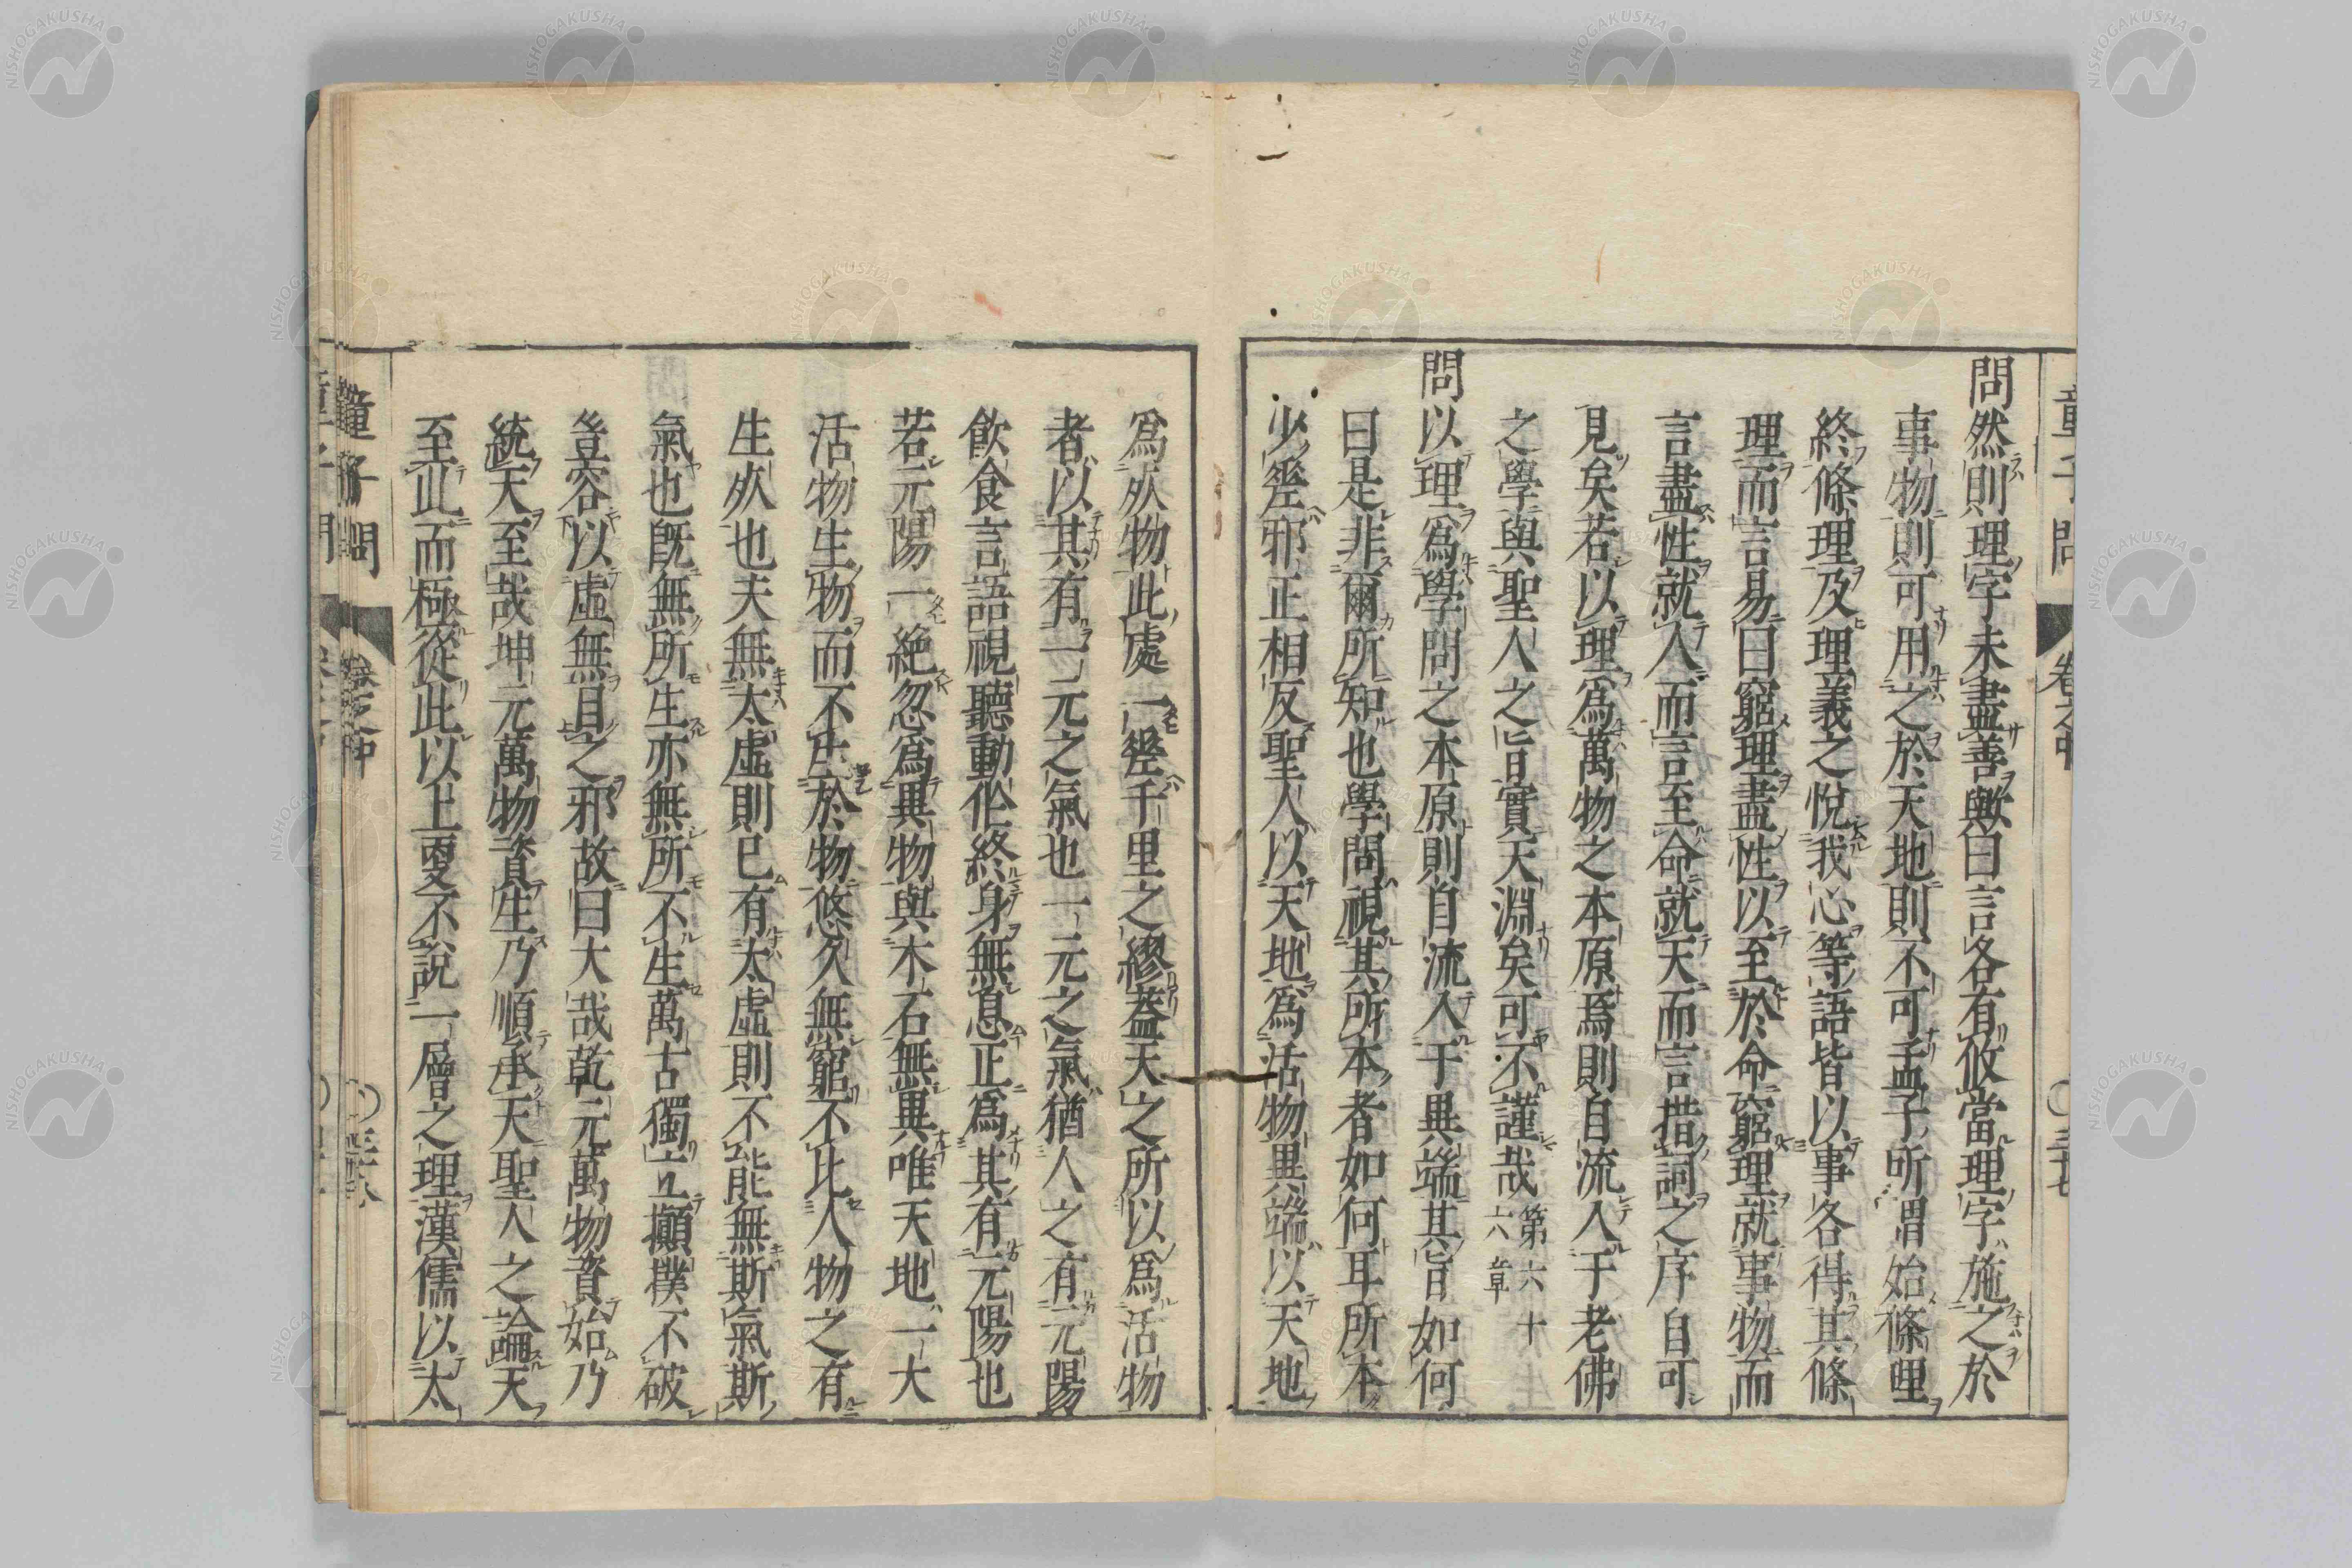 問然則理字未盡善歟曰言各有攸當理字施之於
事物則可用之於天地則不可孟子所謂始條理
終條理及理義之悅我心等語皆以事各得其條
理而言易曰窮理盡性以至於命窮理就事物而
言盡性就人而言至命就天而言措詞之序自可
見矣若以理爲萬物之本原焉則自流入于老佛
之學與聖人之旨實天淵矣可不謹哉第六十六章
問以理爲學問之本原則自流入于異端其旨如何
曰是非爾所知也學問視其所本者如何耳所本
少差邪正相反聖人以天地爲活物異端以天地
爲死物此處一差千里之繆蓋天之所以爲活物
者以其有一元之氣也一元之氣猶人之有元陽
飮食言語視聽動作終身無息正爲其有元陽也
若元陽一絶忽爲異物與木石無異唯天地一大
活物生物而不生於物悠久無窮不比人物之有
生死也夫無太虛則已有太虛則不能無斯氣斯
氣也旣無所生亦無所不生萬古獨立顚撲不破
豈容以虛無目之邪故曰大哉乾元萬物資始乃
統天至哉坤元萬物資生乃順承天聖人之論天
至此而極從此以上更不說一層之理漢儒以太
童子問
卷之中
NISHOGAKUSHA